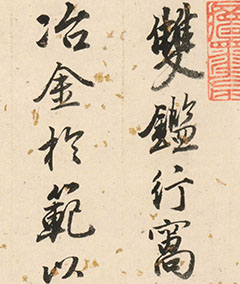 雙鑑行窩
冶金於範以